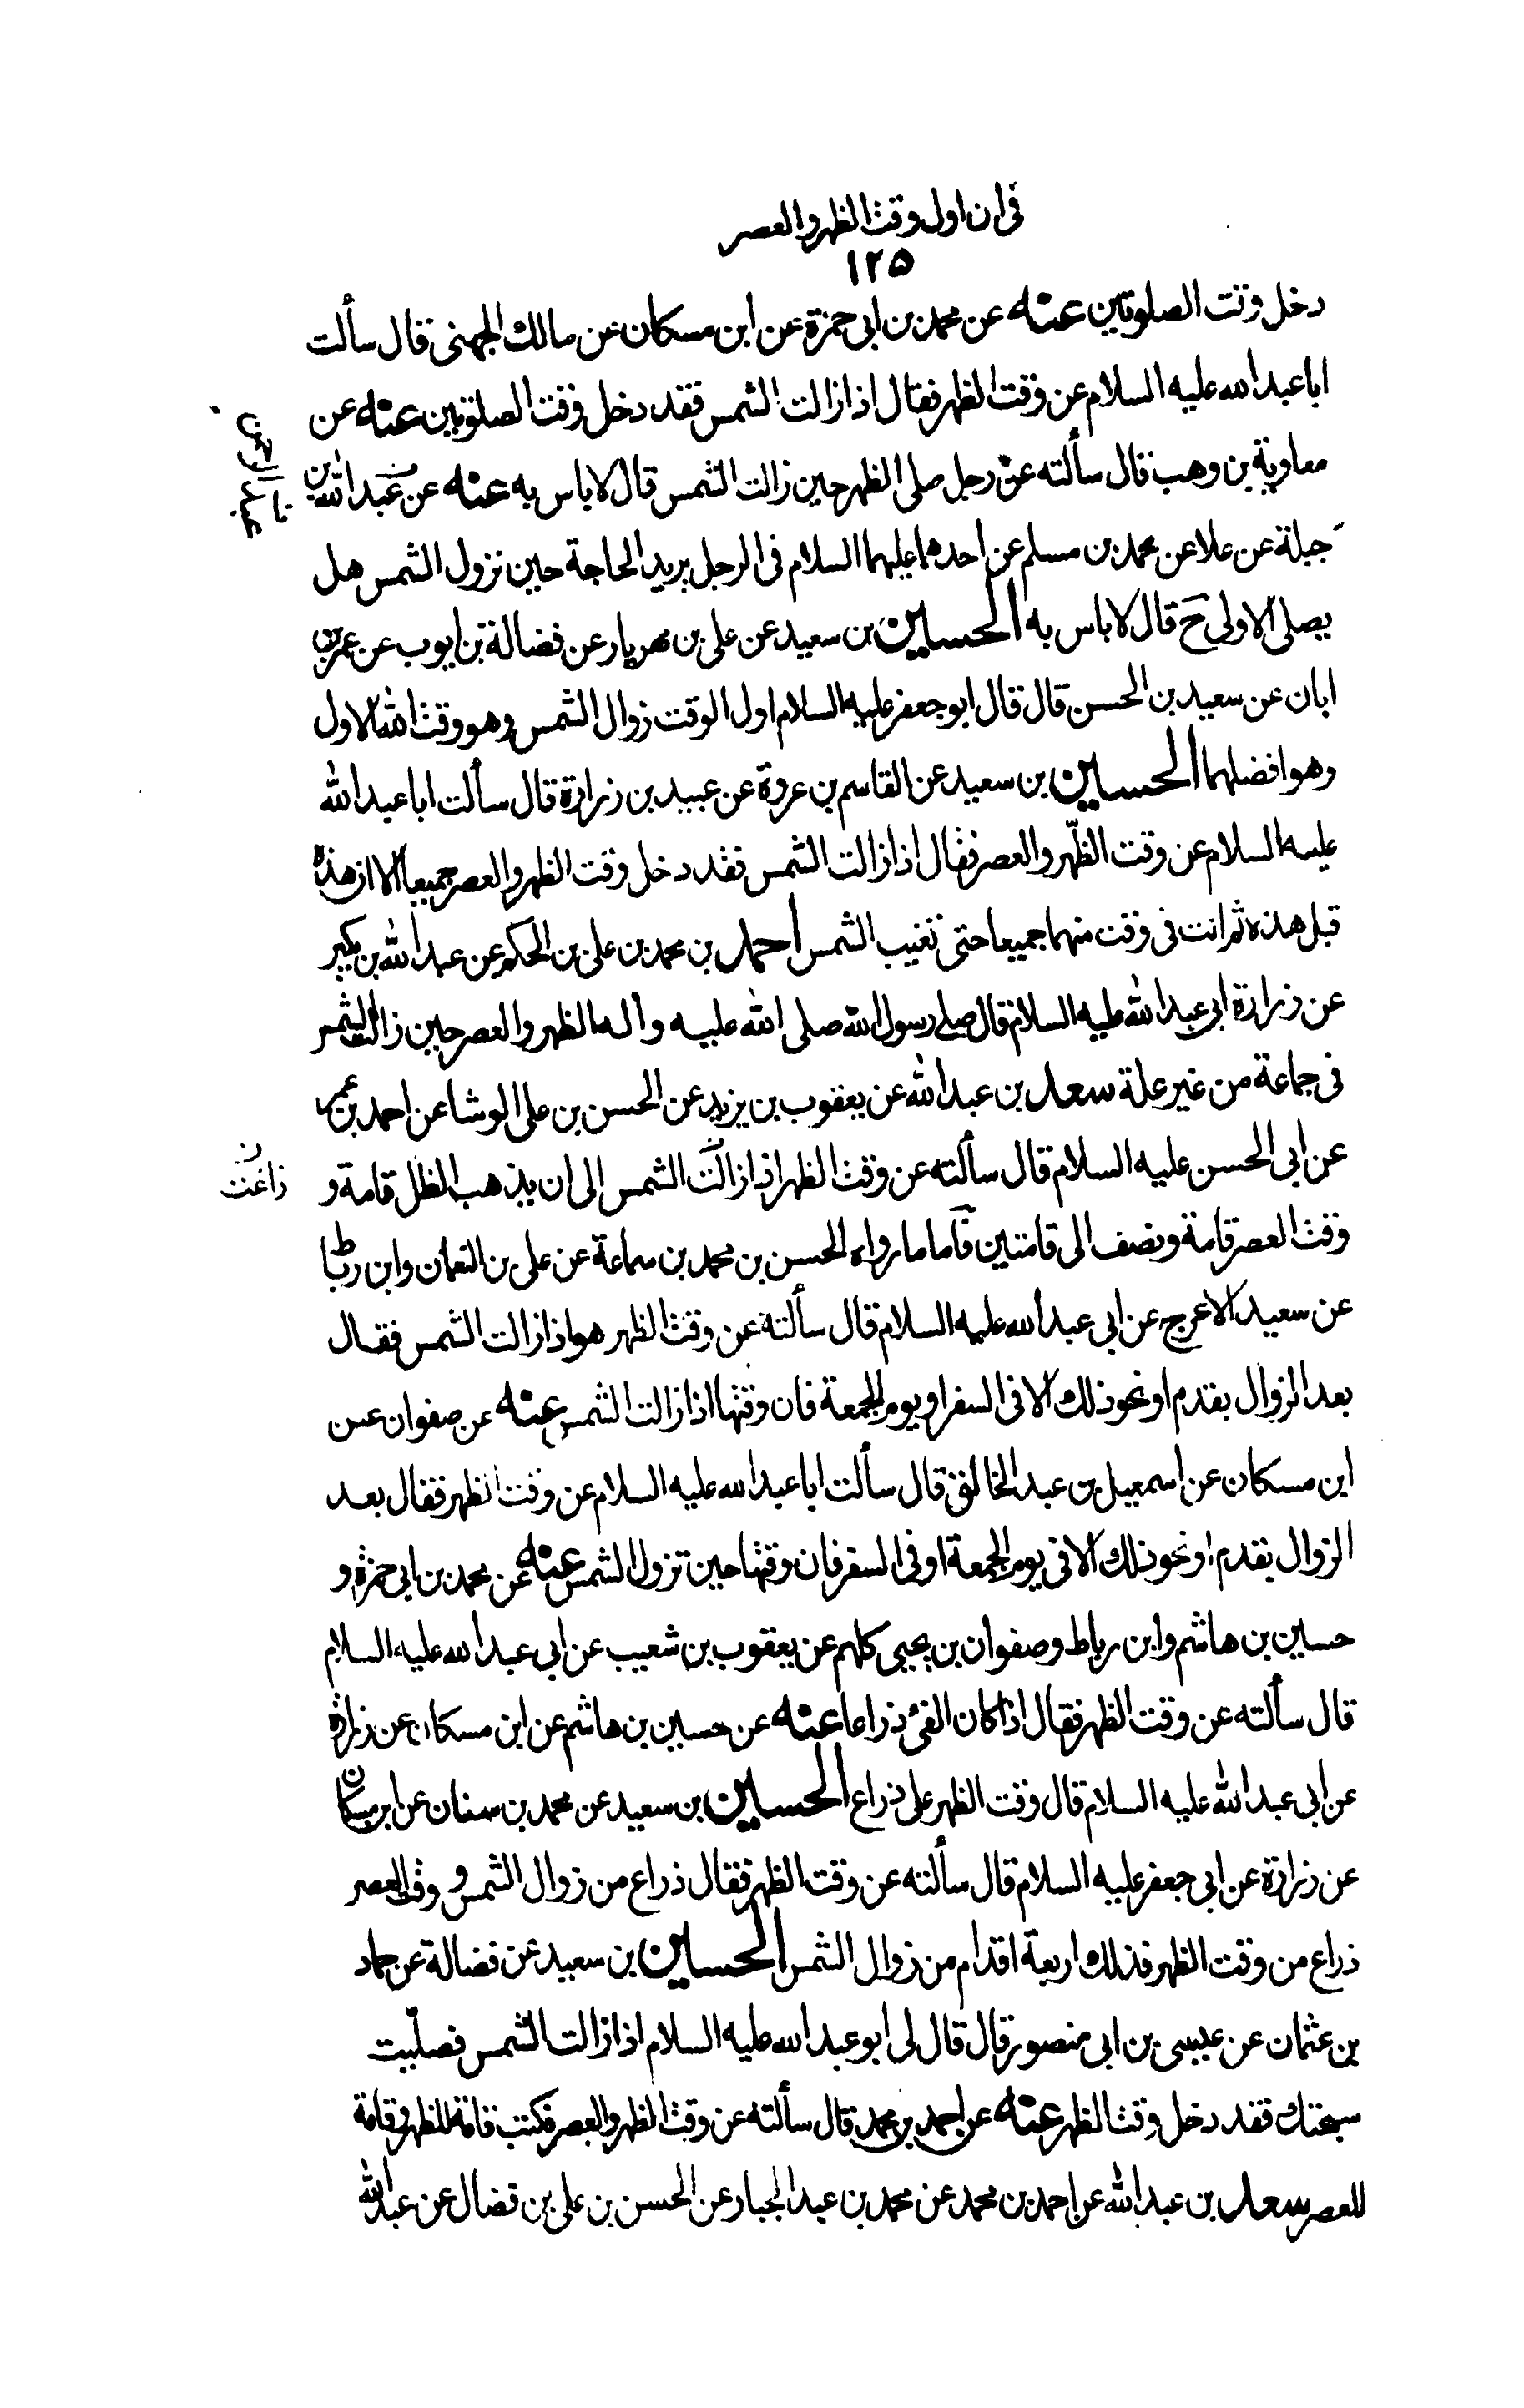 فی ان اول وقت الظهر والعصر
۱۲۵
دخل وقت الصلوتین عنه عن محمد بن ابی حمزة عن ابن مسکان عن مالک الجهنی قال سألت
ابا عبد الله علیه السلام عن وقت الظهر فقال اذا زالت الشمس فقد دخل وقت الصلوتین عنه عن
معاویة بن وهب قال سألته عن رجل صلی الظهر حین زالت الشمس قال لا باس به عنه عن عبد الله بن
جبلة عن علا عن محمد بن مسلم عن احدهما علیهما السلام فی الرجل یرید الحاجة حین تزول الشمس هل
یصلی الاولی ح قال لا باس به الحسین بن سعید عن علی بن مهزیار عن فضالة بن ایوب عن عمر بن
ابان عن سعید بن الحسن قال قال ابو جعفر علیه السلام اول الوقت زوال الشمس وهو وقت الله الاول
وهو افضلهما الحسین بن سعید عن القاسم بن عروة عن عبید بن زرارة قال سألت ابا عبد الله
علیه السلام عن وقت الظّهر والعصر فقال اذا زالت الشمس فقد دخل وقت الظهر والعصر جمیعا الا ان هذه
قبل هذه ثم انت فی وقت منهما جمیعا حتی تغیب الشمس احمد بن محمد بن علی بن الحکم عن عبد الله بن بکیر
عن زرارة ابی عبد الله علیه السلام قال صلی رسول الله صلی الله علیه وآله الظهر والعصر حین زالت الشمس
فی جماعة من غیر علة سعد بن عبد الله عن یعقوب بن یزید عن الحسن بن علی الوشا عن احمد بن عمر
عن ابی الحسن علیه السلام قال سألته عن وقت الظهر اذا زالت الشمس الی ان یذهب الظل قامة و
زاغت ن
وقت العصر قامة ونصف الی قامتین فاما ما رواه الحسن بن محمد بن سماعة عن علی بن النعمان وابن رباط
عن سعید الاعرج عن ابی عبد الله علیه السلام قال سألته عن وقت الظهر هو اذا زالت الشمس فقال
بعد الزوال بقدم او نحو ذلک الا فی السفر او یوم الجمعة فان وقتها اذا زالت الشمس عنه عن صفوان عن
ابن مسکان عن اسمعیل بن عبد الخالق قال سألت ابا عبد الله علیه السلام عن وقت الظهر فقال بعد
الزوال بقدم او نحو ذلک الا فی یوم الجمعة او فی السفر فان وقتها حین تزول الشمس عنه عن محمد بن ابی حمزة و
حسین بن هاشم وابن رباط وصفوان بن یحیی کلهم عن یعقوب بن شعیب عن ابی عبد الله علیه السلام
قال سألته عن وقت الظهر فقال اذا کان الفیٔ ذراعا عنه عن حسین بن هاشم عن ابن مسکان عن زرارة
عن ابی عبد الله علیه السلام قال وقت الظهر علی ذراع الحسین بن سعید عن محمد بن سنان عن ابن مسکان
عن زرارة عن ابی جعفر علیه السلام قال سألته عن وقت الظهر فقال ذراع من زوال الشمس و وقت العصر
ذراع من وقت الظهر فذلک اربعة اقدام من زوال الشمس الحسین بن سعید عن فضالة عن حماد
بن عثمان عن عیسی بن ابی منصور قال قال لی ابو عبد الله علیه السلام اذا زالت الشمس فصلّیت
سبحتک فقد دخل وقت الظهر عنه عن احمد بن محمد قال سألته عن وقت الظهر والعصر فکتب قامة للظهر و قامة
للعصر سعد بن عبد الله عن احمد بن محمد عن محمد بن عبد الجبار عن الحسن بن علی بن فضال عن عبد الله